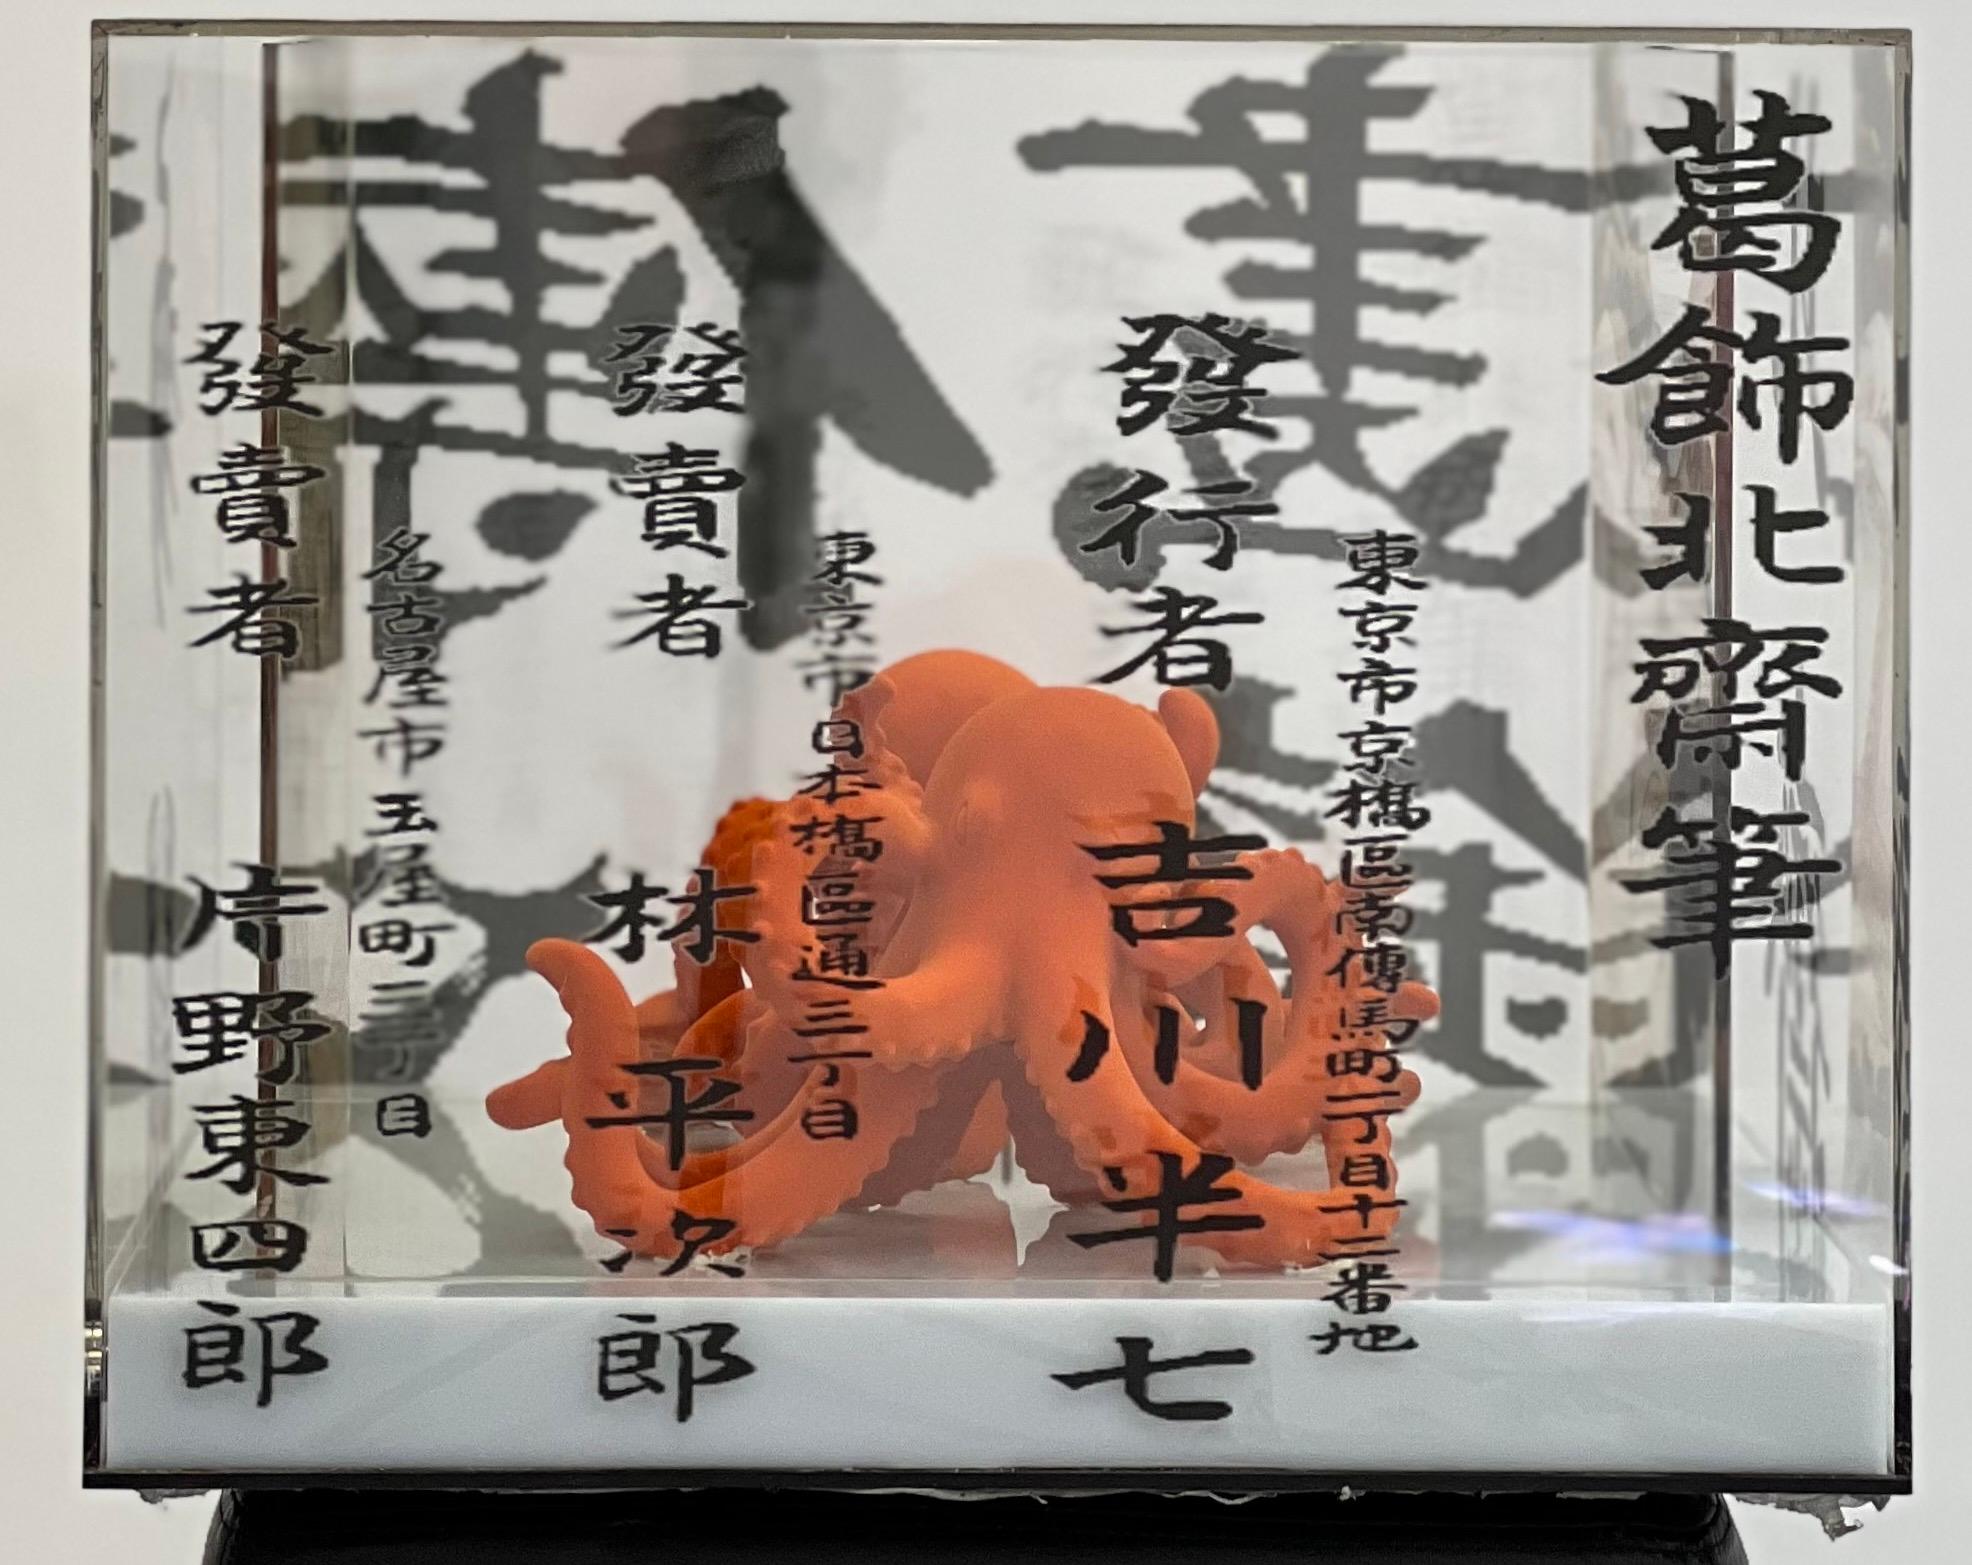 葛飾北齋筆
東京市京橋區南傳馬町一丁目十二番地
發行者 吉川半七
東京市日本橋區通三丁目
發賣者 林平次郎
名古屋市玉屋町二丁目
發賣者 片野東四郎